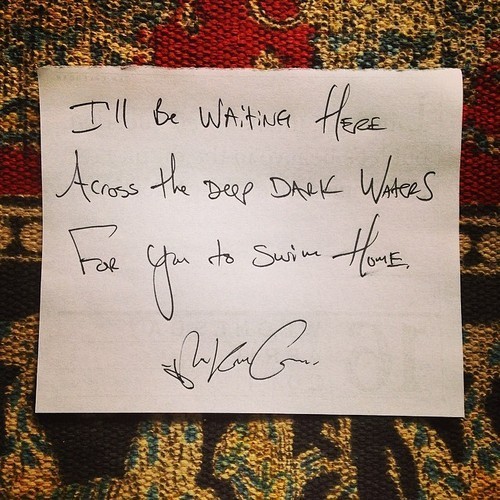 I'll Be Waiting Here
Across the Deep Dark Waters
For you to Swim Home.